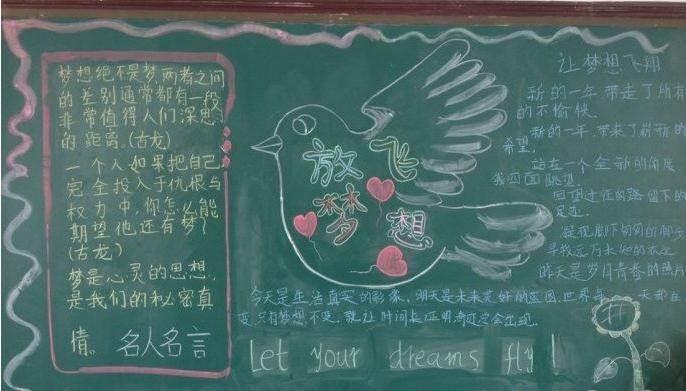 梦想绝不是梦,两者之间
的差别通常都有一段
非常值得人们深思
的距离。(古龙)
一个人如果把自己
完全投入于仇恨与
权力中,你怎么能
期望他还有梦?
(古龙)
梦是心灵的思想,
是我们的秘密真
情。 名人名言
放飞
梦想
让梦想飞翔
新的一年带走了所有
的不愉快.
新的一年,带来了崭新的
希望.
站在一个全新的角度
我四面眺望.
回望过往的路留下的
足迹.
昨天是岁月青春的照片
今天是生活真实的影象,明天是未来美好的蓝图.世界每一天都在
变,只有梦想不变,就让时间来证明奇迹定会出现.
Let your dreams fly!